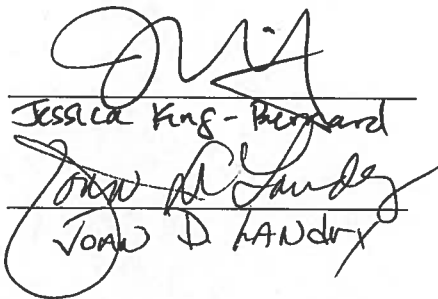 Jessica King-Bernard
Joan D Landry
JOAN D. LANdry